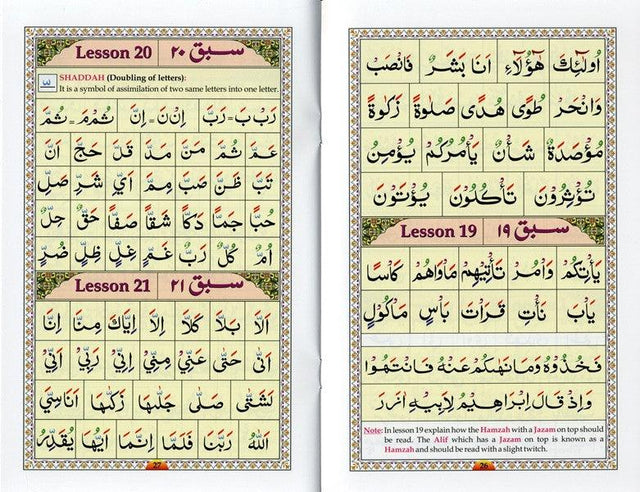 اُولٰٓئِكَ هٰٓؤُلَآءِ اَنَا بَشَرٌ فَانْصَبْ
وَانْحَرْ طُوًى هُدًى صَلٰوةً زَكٰوةً
مُؤْصَدَةٌ شَأْنٌ يَأْمُرُكُمْ يُؤْمِنُ
تُؤْثِرُوْنَ تَأْكُلُوْنَ يُؤْتَوْنَ
Lesson 19 سبق ۱۹
يَأْتِكُمْ وَأْمُرْ تَأْتِيْهِمْ مَاْوَاهُمْ كَاْسًا
يَاْبَ نَاْتِ قَرَاْتَ بَاْسٌ مَاْكُوْلٍ
فَخُذُوْهُ وَمَا نَهٰىكُمْ عَنْهُ فَانْتَهُوْا
وَاِذْ قَالَ اِبْرَاهِيْمُ لِاَبِيْهِ اٰزَرَ
Note: In lesson 19 explain how the Hamzah with a Jazam on top should
be read. The Alif which has a Jazam on top is known as a
Hamzah and should be read with a slight twitch.
26
Lesson 20 سبق ۲۰
SHADDAH (Doubling of letters):
It is a symbol of assimilation of two same letters into one letter.
رَبْ بَ = رَبَّ اِنْ نَ = اِنَّ ثُمْ مَ = ثُمَّ
عَمَّ ثُمَّ مَنَّ مَدَّ قَلَّ حَجَّ اَنَّ
تَبَّ ظَنَّ صَبَّ مِمَّ اَيِّ شَرِّ صَلِّ
حُبًّا جَمًّا دَكًّا شَقًّا صَفًّا حَقٌّ حِلٌّ
اُمٌّ كُلٌّ رَبٌّ غَمٍّ غِلٍّ ظِلٍّ ضُرٍّ
Lesson 21 سبق ۲۱
اَلَّا بَلَّا كَلَّا اِلَّا اِيَّاكَ مِنَّا اِنَّا
اَنّٰى حَتّٰى عَنِّيْ مِنِّيْ اِنِّيْ رَبِّيْ اَنِّيْ
لَشَتّٰى صَلّٰى جَلّٰىهَا زَكّٰىهَا اَنَاسِيَّ
اَللّٰهُ رَبَّنَا فَلَمَّا اِنَّمَا اَيُّهَا يُقَدِّرُ
27